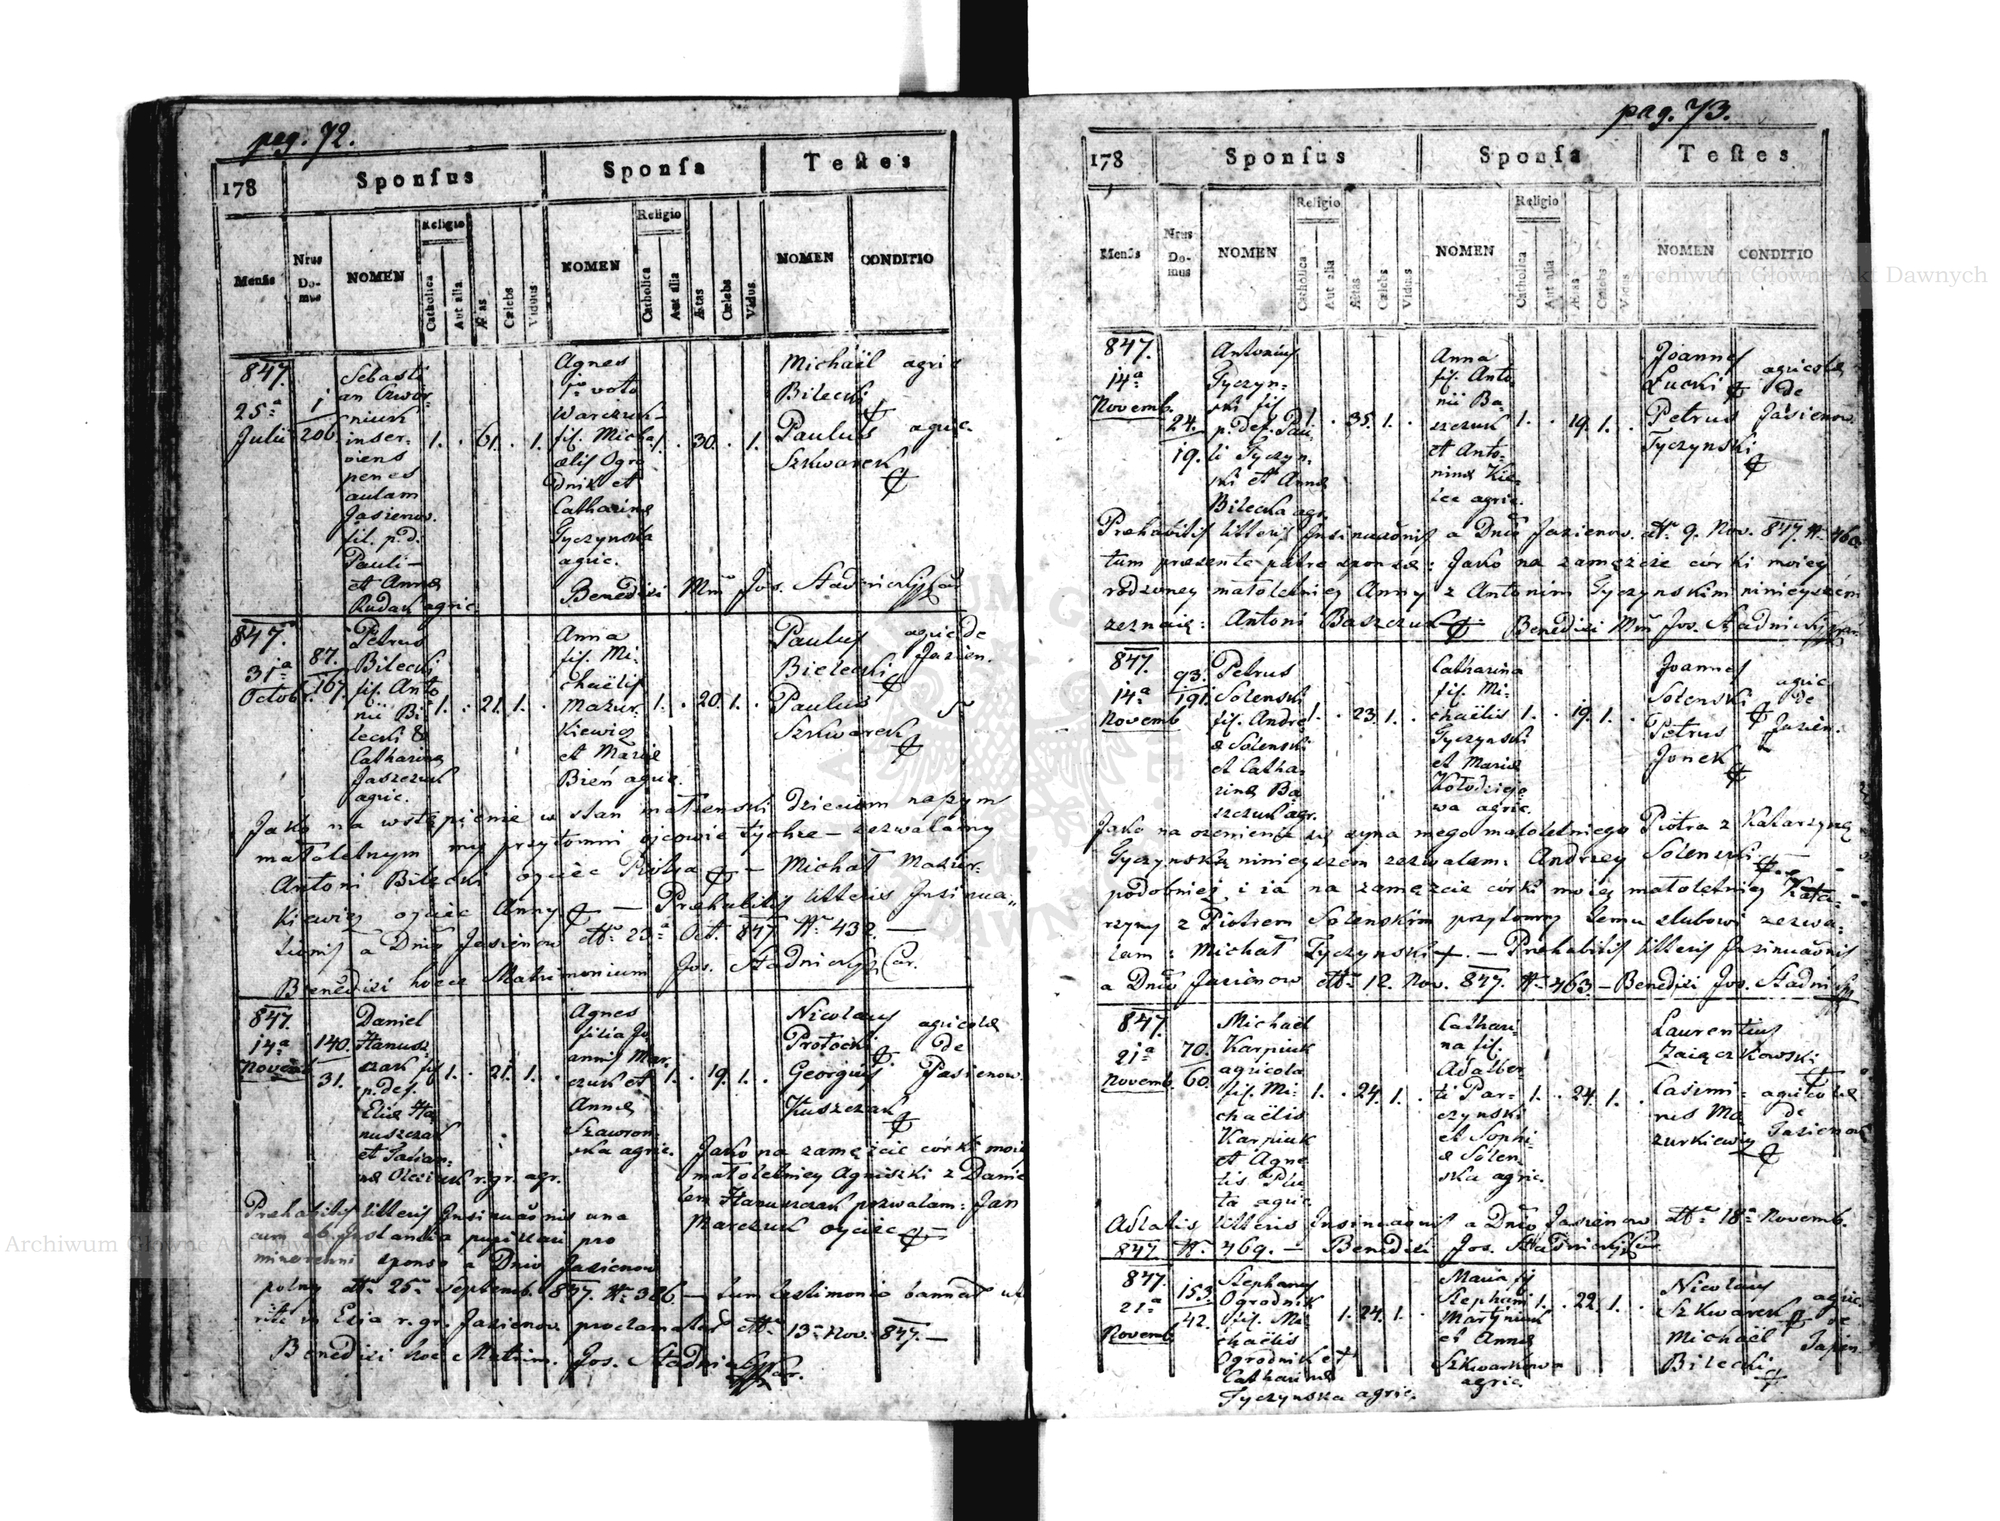 pag. 72.
178
Sponſus
Sponſa
Teſtes
Menſis
Nrus Domus
NOMEN
Religio
Catholica
Aut alia
Ætas
Cœlebs
Viduus
NOMEN
Religio
Catholica
Aut alia
Ætas
Cœlebs
Vidus
NOMEN
CONDITIO
847.
25ª
Julii
1
206.
Sebasti
an
niuk
inser-
viens
penes
aulam
Jasienov.
fil. p. d.
Pauli
et Annæ
Rudak agric.
1. . 61. . 1.
Agnes
1º voto
Warczuk
fil. Micha
elis Ogro
dnik et
Catharinæ
Tyczynska
agric.
1. . 30. . 1.
Michaël agric
Bilecki
Paulus agric.
Szkwarek
Benedixi Mm Jos. Stadnicki Par
847.
31ª
Octobr.
87.
167.
Petrus
Bilecki
fil. Anto
nii Bi-
lecki &
Catharinæ
Jaszczuk
agric.
1. . 21. 1. .
Anna
fil. Mi-
chaëlis
Mazur-
kiewicz
et Mariæ
Bień agric.
1. . 20. 1. .
Paulus agric de
Bielecki Jasien.
Paulus
Szkwarek
Jako na wstąpienie w stan małżenski dzieciom naszym
małoletnym my przytomni ojcowie tychże – zezwalamy
Antoni Bilecki ojciec Piotra – Michał Mazur-
kiewicz ojciec Anny – Præhabitis litteris Insinua-
tionis a Dnio Jasienow dtto 23ª Oct. 847 N. 432. –
Benedixi hocce Matrimonium Jos. Stadnicki Par.
847.
14ª
Novemb.
140.
31.
Daniel
Hanusz-
czak fil
p. def.
Eliæ Ha
nuszczak
et Tatian-
næ Oleciuk r. gr. agr.
1. . 21. 1. .
Agnes
filia Jo
annis Mar-
czuk et
Annæ
Szawron-
ska agric.
1. . 19. 1. .
Nicolaus agricolæ
Protocki de
Georgius Jasienow.
Kuszczak
Jako na zamęzcie córki moie
małoletniey Agniszki z Danie
lem Hanuszczak pozwalam: Jan
Marczuk oyciec
Præhabitis litteris Insinuaonis una
cum ab Instantia pupillari pro
minorenni sponso a Dnio Jasienow
polny dtto 25ª Septemb. 847. N. 386. – tum testimonio bannor ut
rite in Ecia r. gr. Jasienow proclamator dtto 13ª Nov. 847. –
Benedixi hoc Matrim. Jos. Stadnicki Par.
pag. 73.
178
Sponſus
Sponſa
Teſtes
Menſis
Nrus Domus
NOMEN
Religio
Catholica
Aut alia
Ætas
Cœlebs
Viduus
NOMEN
Religio
Catholica
Aut alia
Ætas
Cœlebs
Vidus
NOMEN
CONDITIO
847.
14ª
Novemb.
24.
19.
Antonius
Tyczyn-
ski fil
p. def. Pau-
li Tyczyn-
ski et Annæ
Bilecka agr.
1. . 35. 1. .
Anna
fil. Anto-
nii Ba-
szczuk
et Anto-
ninæ Kie-
lec agric.
1. . 19. 1. .
Joannes agricolæ
Łucki de
Petrus Jasienow.
Tyczynski
Præhabitis litteris Insinuaonis a Dnio Jasienow. dtto 9. Nov. 847. N. 460.
tum præsente patre sponsæ: Jako na zamęzcie córki moiey
rodzoney małoletniey Anny z Antonim Tyczynskim ninieyszém
zeznaię: Antoni Baszczuk Benedixi Mm Jos. Stadnicki Par
847.
14ª
Novemb
93.
191.
Petrus
Solenski
fil. Andre
æ Solenski
et Catha-
rinæ Ba-
szczuk agr.
1. . 23. 1. .
Catharina
fil. Mi-
chaëlis
Tyczynski
et Mariæ
Kołodziejo
wa agric.
1. . 19. 1. .
Joannes agric
Solenski de
Petrus Jasien.
Jonek
Jako na ożenienie się syna mego małoletniego Piotra z Katarzyną
Tyczynską ninieyszem zezwalam: Andrzey Solenski
podobnież i ia na zamęzcie córki moiey małoletniey Kata-
rzyny z Piotrem Solenskim przytomny temu slubowi zezwa-
lam: Michał Tyczynski + – Præhabitis litteris Insinuaonis
a Dnio Jasienow dtto 12. Nov. 847. N. 463. – Benedixi Jos. Stadnicki
847.
21ª
Novemb.
70.
60.
Michael
Karpiuk
agricola
fil. Mi-
chaëlis
Karpiuk
et Agne
tis Plu
ta agric.
1. . 24. 1. .
Cathari-
na fil.
Adalber-
ti Par-
czynski
et Sophi-
æ Solen-
ska agric.
1. . 24. 1. .
Laurentius
Zaiączkowski
Casimi- agricolæ
rus Ma- de
zurkiewicz Jasienow
Adlatis litteris Insinuaonis a Dnio Jasienow dtto 18ª Novemb.
847. N. 469. – Benedixi Jos. Stadnicki Par
847.
21ª
Novemb.
153.
42.
Stephanus
Ogrodnik
fil. Mi-
chaëlis
Ogrodnik et
Catharinæ
Tyczynska agric.
1. 24. 1.
Maria fil
Stephani
Martyniuk
et Annæ
Szkwarkowa
agric.
1. . 22. 1. .
Nicolaus agric.
Szkwarek de
Michaël Jasien
Bilecki
Archiwum Główne Akt Dawnych
Archiwum Główne Akt Dawnych